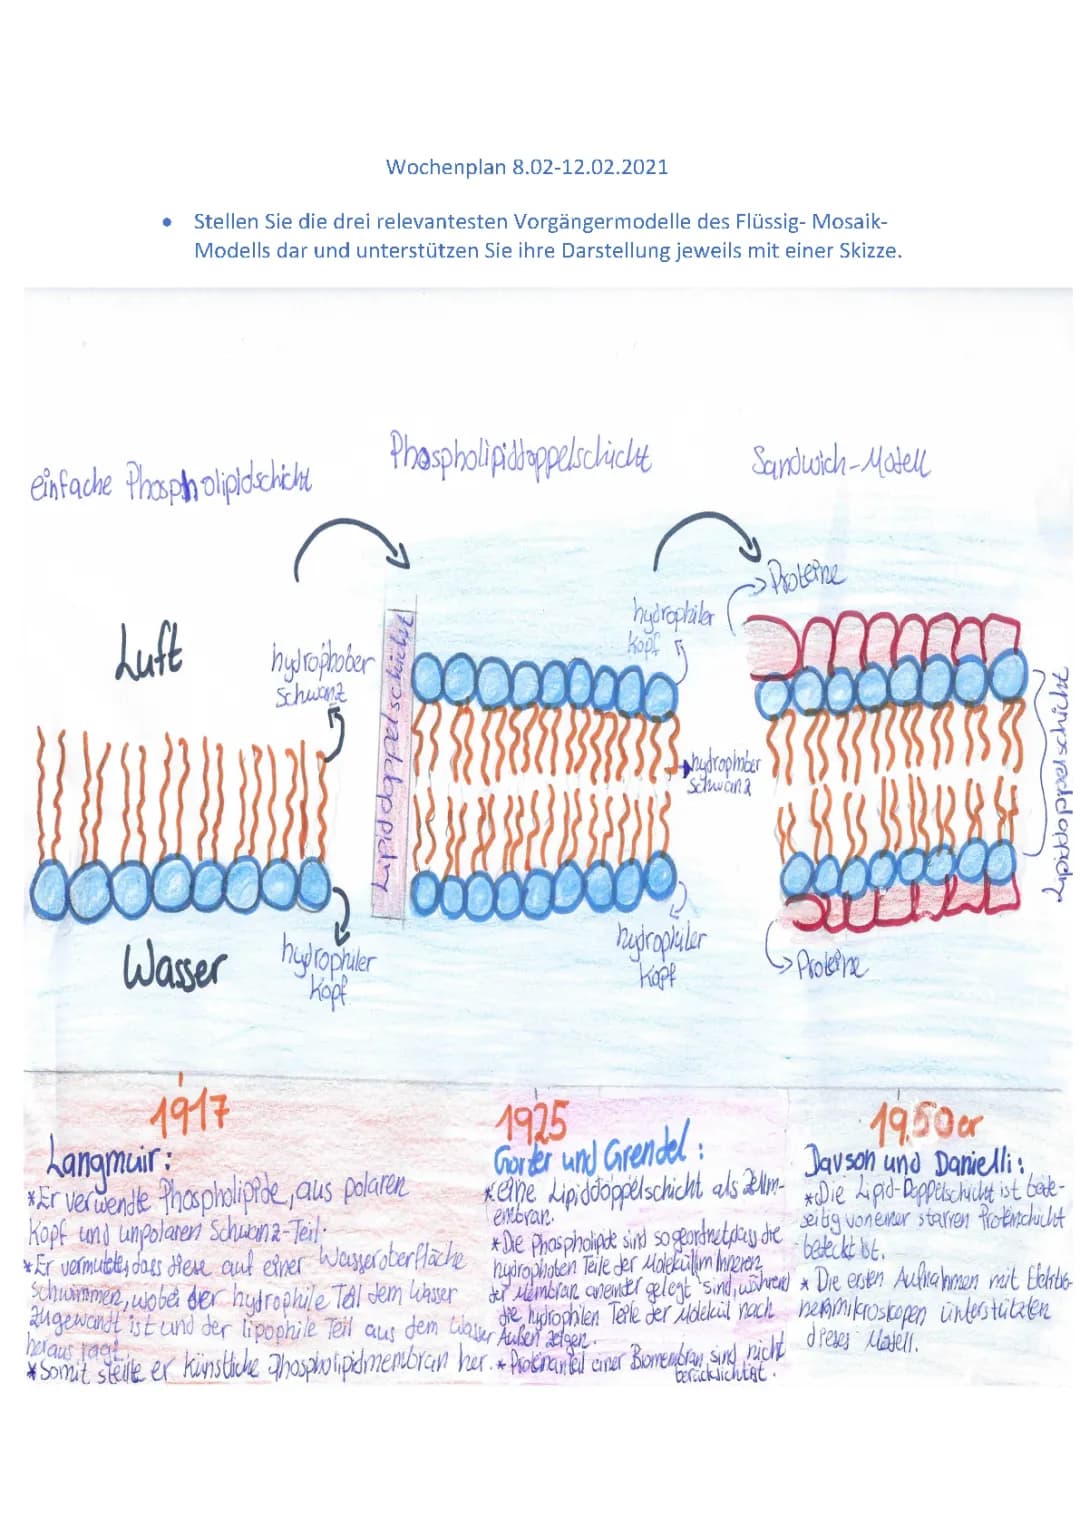 Wochenplan 8.02-12.02.2021
• Stellen Sie die drei relevantesten Vorgängermodelle des Flüssig- Mosaik-
Modells dar und unterstützen Sie ihre Darstellung jeweils mit einer Skizze.
einfache Phospholipidschicht
Phospholipiddoppelschicht
Sandwich-Modell
Luft
hydrophober
Schwanz
Wasser
hydrophiler
Kopf
Lipiddoppelschicht
hydrophiler
Kopf
hydrophober
Schwanz
hydrophiler
Kopf
Proteine
Lipiddoppelschicht
Proteine
1917
Langmuir:
*Er verwendte Phospholipide, aus polaren
Kopf und unpolaren Schwanz-Teil.
*Er vermutete, dass diese auf einer Wasseroberfläche
schwimmen, wobei der hydrophile Teil dem Wasser
zugewandt ist und der lipophile Teil aus dem Wasser
heraus ragt.
*Somit stellte er künstliche Phospholipidmembran her.
1925
Gorter und Grendel:
*eine Lipiddoppelschicht als Zellm-
embran.
*Die Phospholipide sind so geordnet, dass die
hydrophoben Teile der Moleküle im Inneren
der Membran aneinder gelegt sind, während
die hydrophilen Teile der Molekül nach
Außen zeigen.
*Proteinanteil einer Biomembran sind nicht
berücksichtigt.
1950er
Davson und Danielli:
*Die Lipid-Doppelschicht ist beid-
seitig von einer starren Proteinschicht
bedeckt ist.
* Die ersten Aufnahmen mit Elektro-
nenmikroskopen unterstützten
dieses Modell.